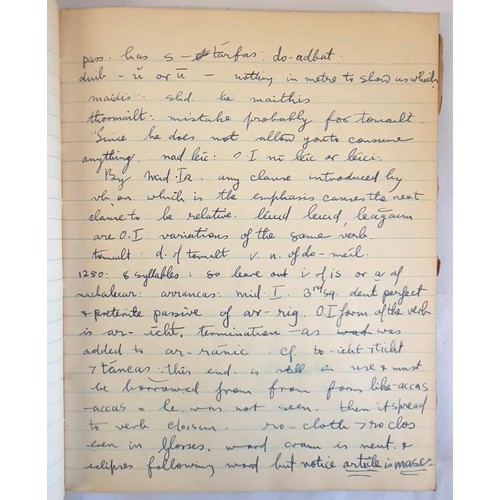 pass. has s - tárfas: do-adbat.
duib - ŭ or ū - nothing in metre to show us which
maidis: shd. be maithis
thormailt: mistake probably for tomailt.
"Since he does not allow you to consume
anything. nad léic: O.I ní léic or léici.
By Mid. Ir. any clause introduced by
vb. on which is the emphasis causes the next
clause to be relative. léicid léicid, leagaim
are O.I variations of the same verb.
tomailt: d. of tomailt v. n. of do-meil.
1250: 8 syllables: so leave out i of is or a of
arrancas: Mid. I. 3rd sg. perfect
& preterite passive of ar-rig. O.I form of the verb
is ar-icht. termination -as was
added to ar-ránic. cf. to-icht > ticht
> táncas. this end. is still in use & must
be borrowed from from form like -accas
-accas = he was not seen. then it spread
to verb cloisim. ro-cloth > ro clos
even in Glosses. word crann is neut. &
eclipses following word but notice article is masc.